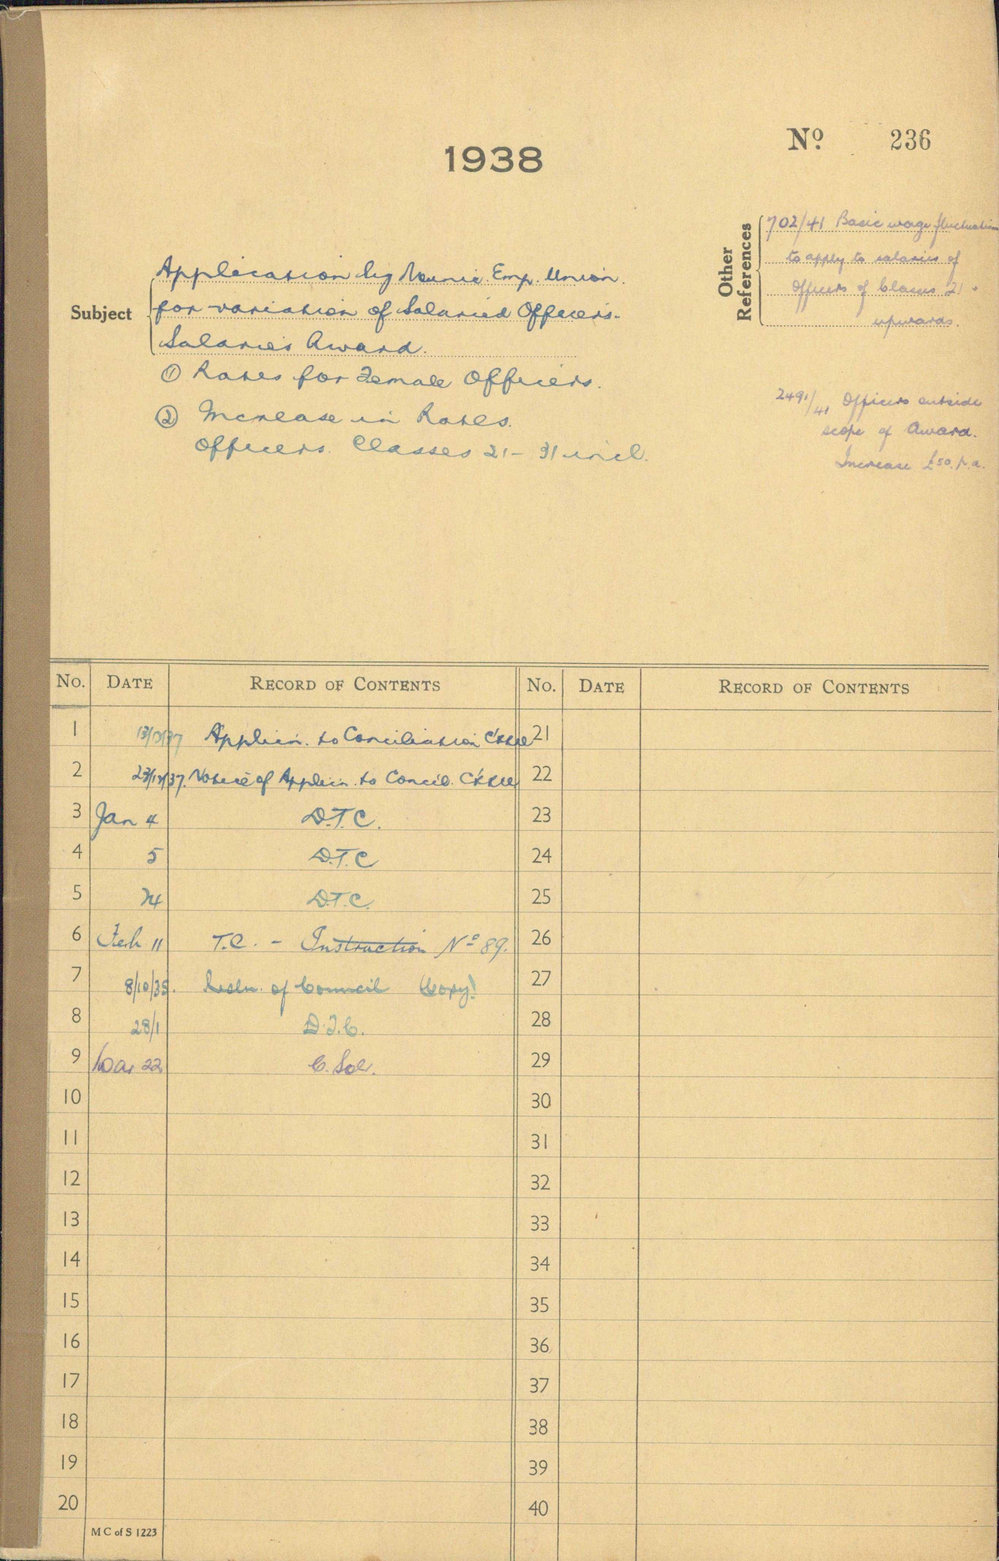 1938
No 236
Other References
702/41 Basic wage fluctuation
to apply to salaries of
Officers of Classes 21
upwards.
Subject
Application by Munic Emp. Union.
for variation of Salaried Officers.
Salaries Award.
① Rates for Female Officers.
② Increase in Rates.
Officers. Classes 21 - 31 incl.
2491/41 Officers outside
scope of Award.
Increase £50 p.a.
No. DATE RECORD OF CONTENTS No. DATE RECORD OF CONTENTS
1 13/12/37 Applicn. to Conciliation C'ttee 21
2 23/12/37. Notice of Applicn. to Concil. C'ttee 22
3 Jan 4 D.T.C. 23
4 5 D.T.C 24
5 24 D.T.C. 25
6 Feb 11 T.C. - Instruction No 89. 26
7 8/10/35. Resln. of Council (Copy) 27
8 28/1 D.T.C. 28
9 Mar 22 C. Sol. 29
10 30
11 31
12 32
13 33
14 34
15 35
16 36
17 37
18 38
19 39
20 40
M C of S 1223